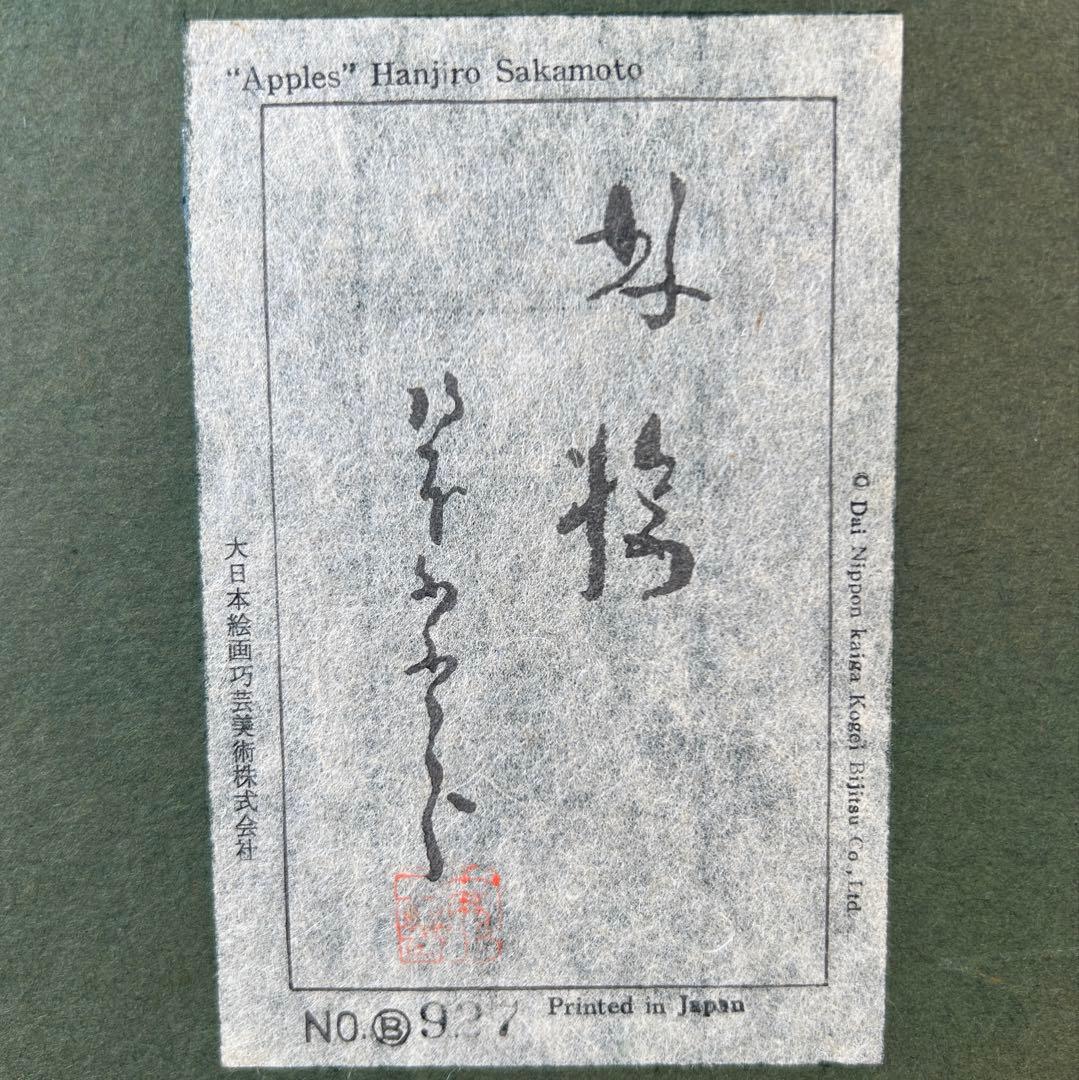 "Apples" Hanjiro Sakamoto
林檎
大日本絵画巧芸美術株式会社
© Dai Nippon kaiga Kogei Bijitsu Co., Ltd.
NO. Ⓑ 927
Printed in Japan